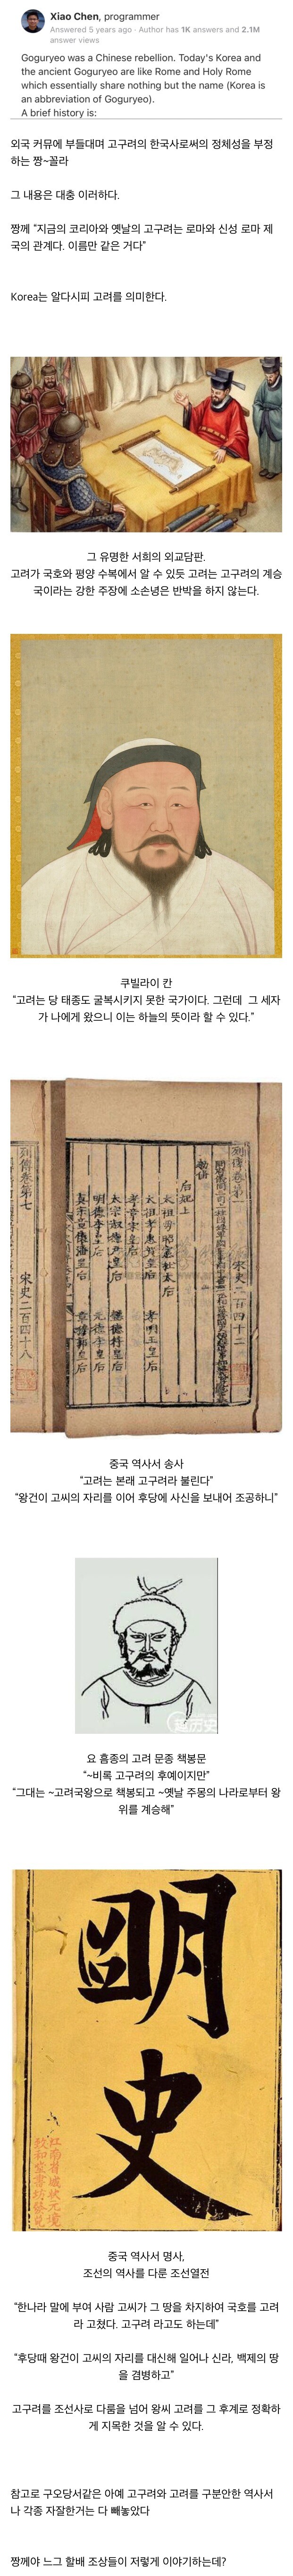 Xiao Chen, programmer
Answered 5 years ago · Author has 1K answers and 2.1M
answer views
Goguryeo was a Chinese rebellion. Today's Korea and
the ancient Goguryeo are like Rome and Holy Rome
which essentially share nothing but the name (Korea is
an abbreviation of Goguryeo).
A brief history is:
외국 커뮤에 부들대며 고구려의 한국사로써의 정체성을 부정
하는 짱~꼴라
그 내용은 대충 이러하다.
짱께 "지금의 코리아와 옛날의 고구려는 로마와 신성 로마 제
국의 관계다. 이름만 같은 거다"
Korea는 알다시피 고려를 의미한다.
그 유명한 서희의 외교담판.
고려가 국호와 평양 수복에서 알 수 있듯 고려는 고구려의 계승
국이라는 강한 주장에 소손녕은 반박을 하지 않는다.
쿠빌라이 칸
"고려는 당 태종도 굴복시키지 못한 국가이다. 그런데 그 세자
가 나에게 왔으니 이는 하늘의 뜻이라 할 수 있다."
列傳卷第七
宋史二百四十八
列傳卷第一
宋史二百四十二
后妃上
중국 역사서 송사
"고려는 본래 고구려라 불린다"
"왕건이 고씨의 자리를 이어 후당에 사신을 보내어 조공하니"
趣历史
요 흥종의 고려 문종 책봉문
"~비록 고구려의 후예이지만"
"그대는 ~고려국왕으로 책봉되고 ~옛날 주몽의 나라로부터 왕
위를 계승해"
明史
중국 역사서 명사,
조선의 역사를 다룬 조선열전
"한나라 말에 부여 사람 고씨가 그 땅을 차지하여 국호를 고려
라 고쳤다. 고구려 라고도 하는데"
"후당때 왕건이 고씨의 자리를 대신해 일어나 신라, 백제의 땅
을 겸병하고"
고구려를 조선사로 다룸을 넘어 왕씨 고려를 그 후계로 정확하
게 지목한 것을 알 수 있다.
참고로 구오당서같은 아예 고구려와 고려를 구분안한 역사서
나 각종 자잘한거는 다 빼놓았다
짱께야 느그 할배 조상들이 저렇게 이야기하는데?